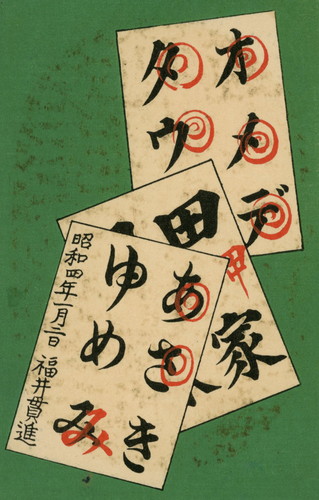 オメデ
タウ
甲
田
家
あさき
ゆめみ
み
昭和四年一月二日 福井貫進